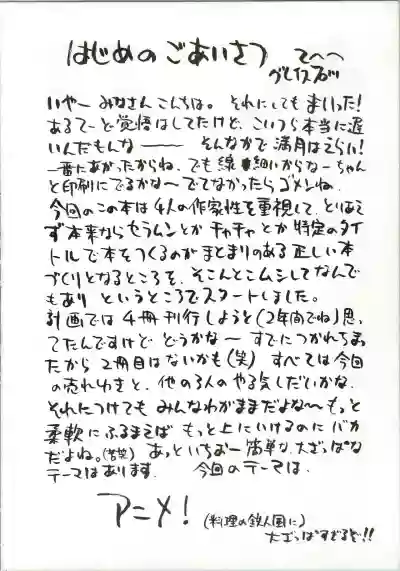 はじめのごあいさつ てへへ
いやー みなさんこんちは。 それにしてもまいった!
あるてーど覚悟はしてたけど、こいつら本当に遅
いんだもんな―― そんなかで満月はえらい!
一番にあがったからね、でも線細いからなーちゃん
と印刷にでるかな〜 でてなかったらゴメンね。
今回のこの本は4人の作家性を重視して、とりあえ
ず本来ならセラムンとかチャチャとか特定のタイ
トルで本をつくるのがまとまりのある正しい本
づくりとなるところを、そこんとこムシしてなんで
もあり というところでスタートしました。
計画では4冊刊行しようと(2年間でね)思っ
てたんですけど どうかな〜 すでにつかれちまっ
たから 2冊目はないかも(笑) すべては今回
の売れゆきと、他の3人のやる気しだいかな。
それにつけても みんなわがままだよな〜もっと
柔軟にふるまえば もっと上にいけるのにバカ
だよね。(苦笑) あっといちおー簡単な、大ざっぱな
テーマはあります. 今回のテーマは、
アニメ!
(料理の鉄人風に)
大ざっぱすぎるぞ!!